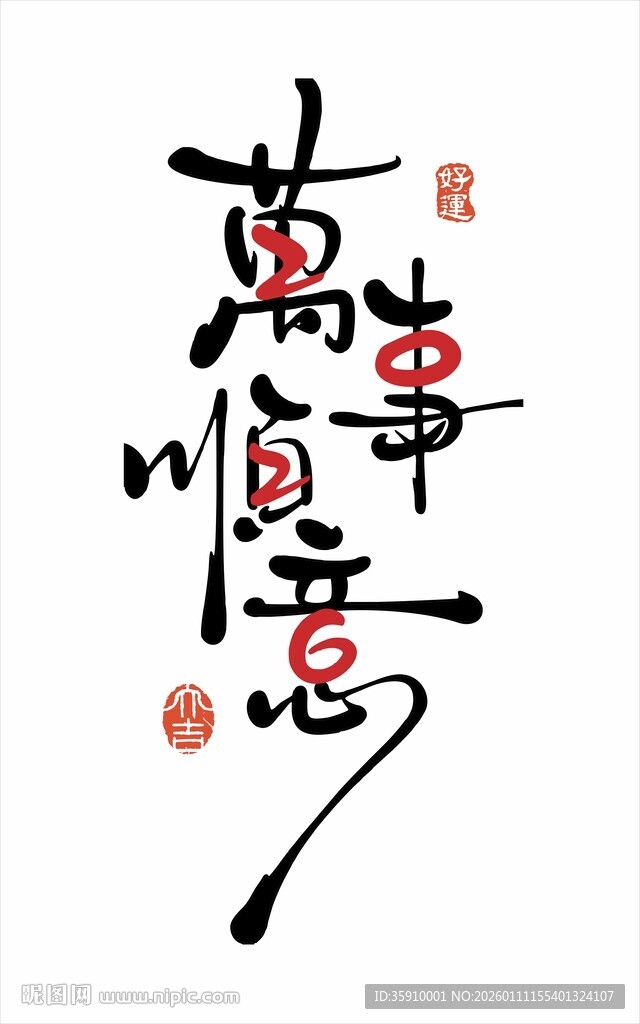 萬事順意
2026
好運
大吉
昵图网 www.nipic.com
ID:35910001 NO:20260111155401324107